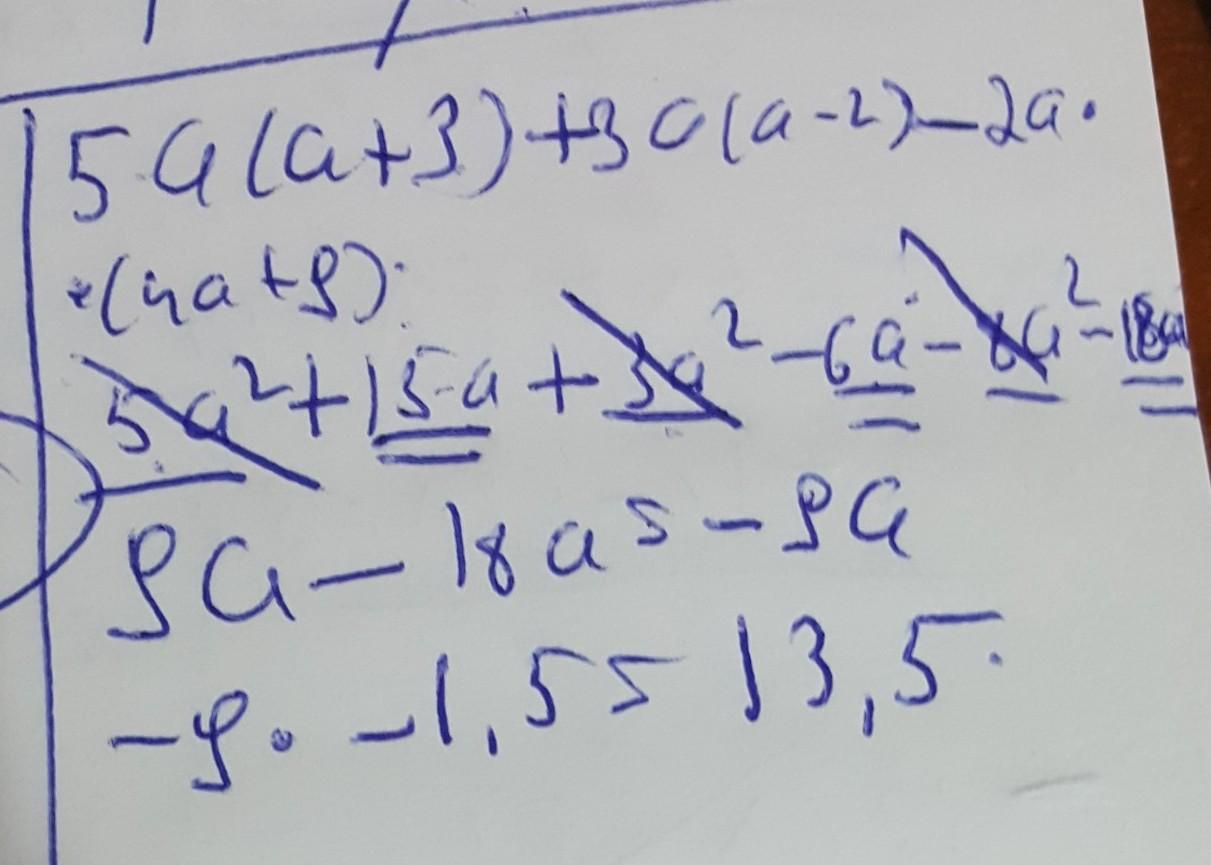 5a(a+3)+3a(a-2)-2a·
·(4a+9):
5a²+15a+3a²-6a-8a²-18a
9a-18a=-9a
-9·-1,5=13,5.